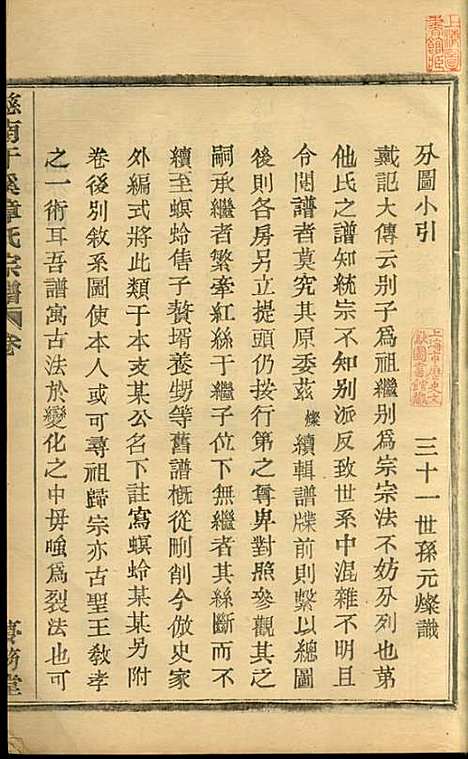 分圖小引
三十一世孫元燦識
戴記大傳云别子爲祖繼别爲宗宗法不妨分列也第
他氏之譜知統宗不知别派反致世系中混雜不明且
令閱譜者莫究其原委茲燦續輯譜牒前則繫以總圖
後則各房另立提頭仍按行第之尊卑對照參觀其之
嗣承繼者繁牽紅絲于繼子位下無繼者其絲斷而不
續至螟蛉售子贅壻養甥等舊譜槪從刪削今倣史家
外編式將此類于本支某公名下註寫螟蛉某某另附
卷後别敘系圖使本人或可尋祖歸宗亦古聖王敎孝
之一術耳吾譜寓古法於變化之中毋嗤爲裂法也可
慈南干溪章氏宗譜
卷
上海市歷史文
獻圖書館藏